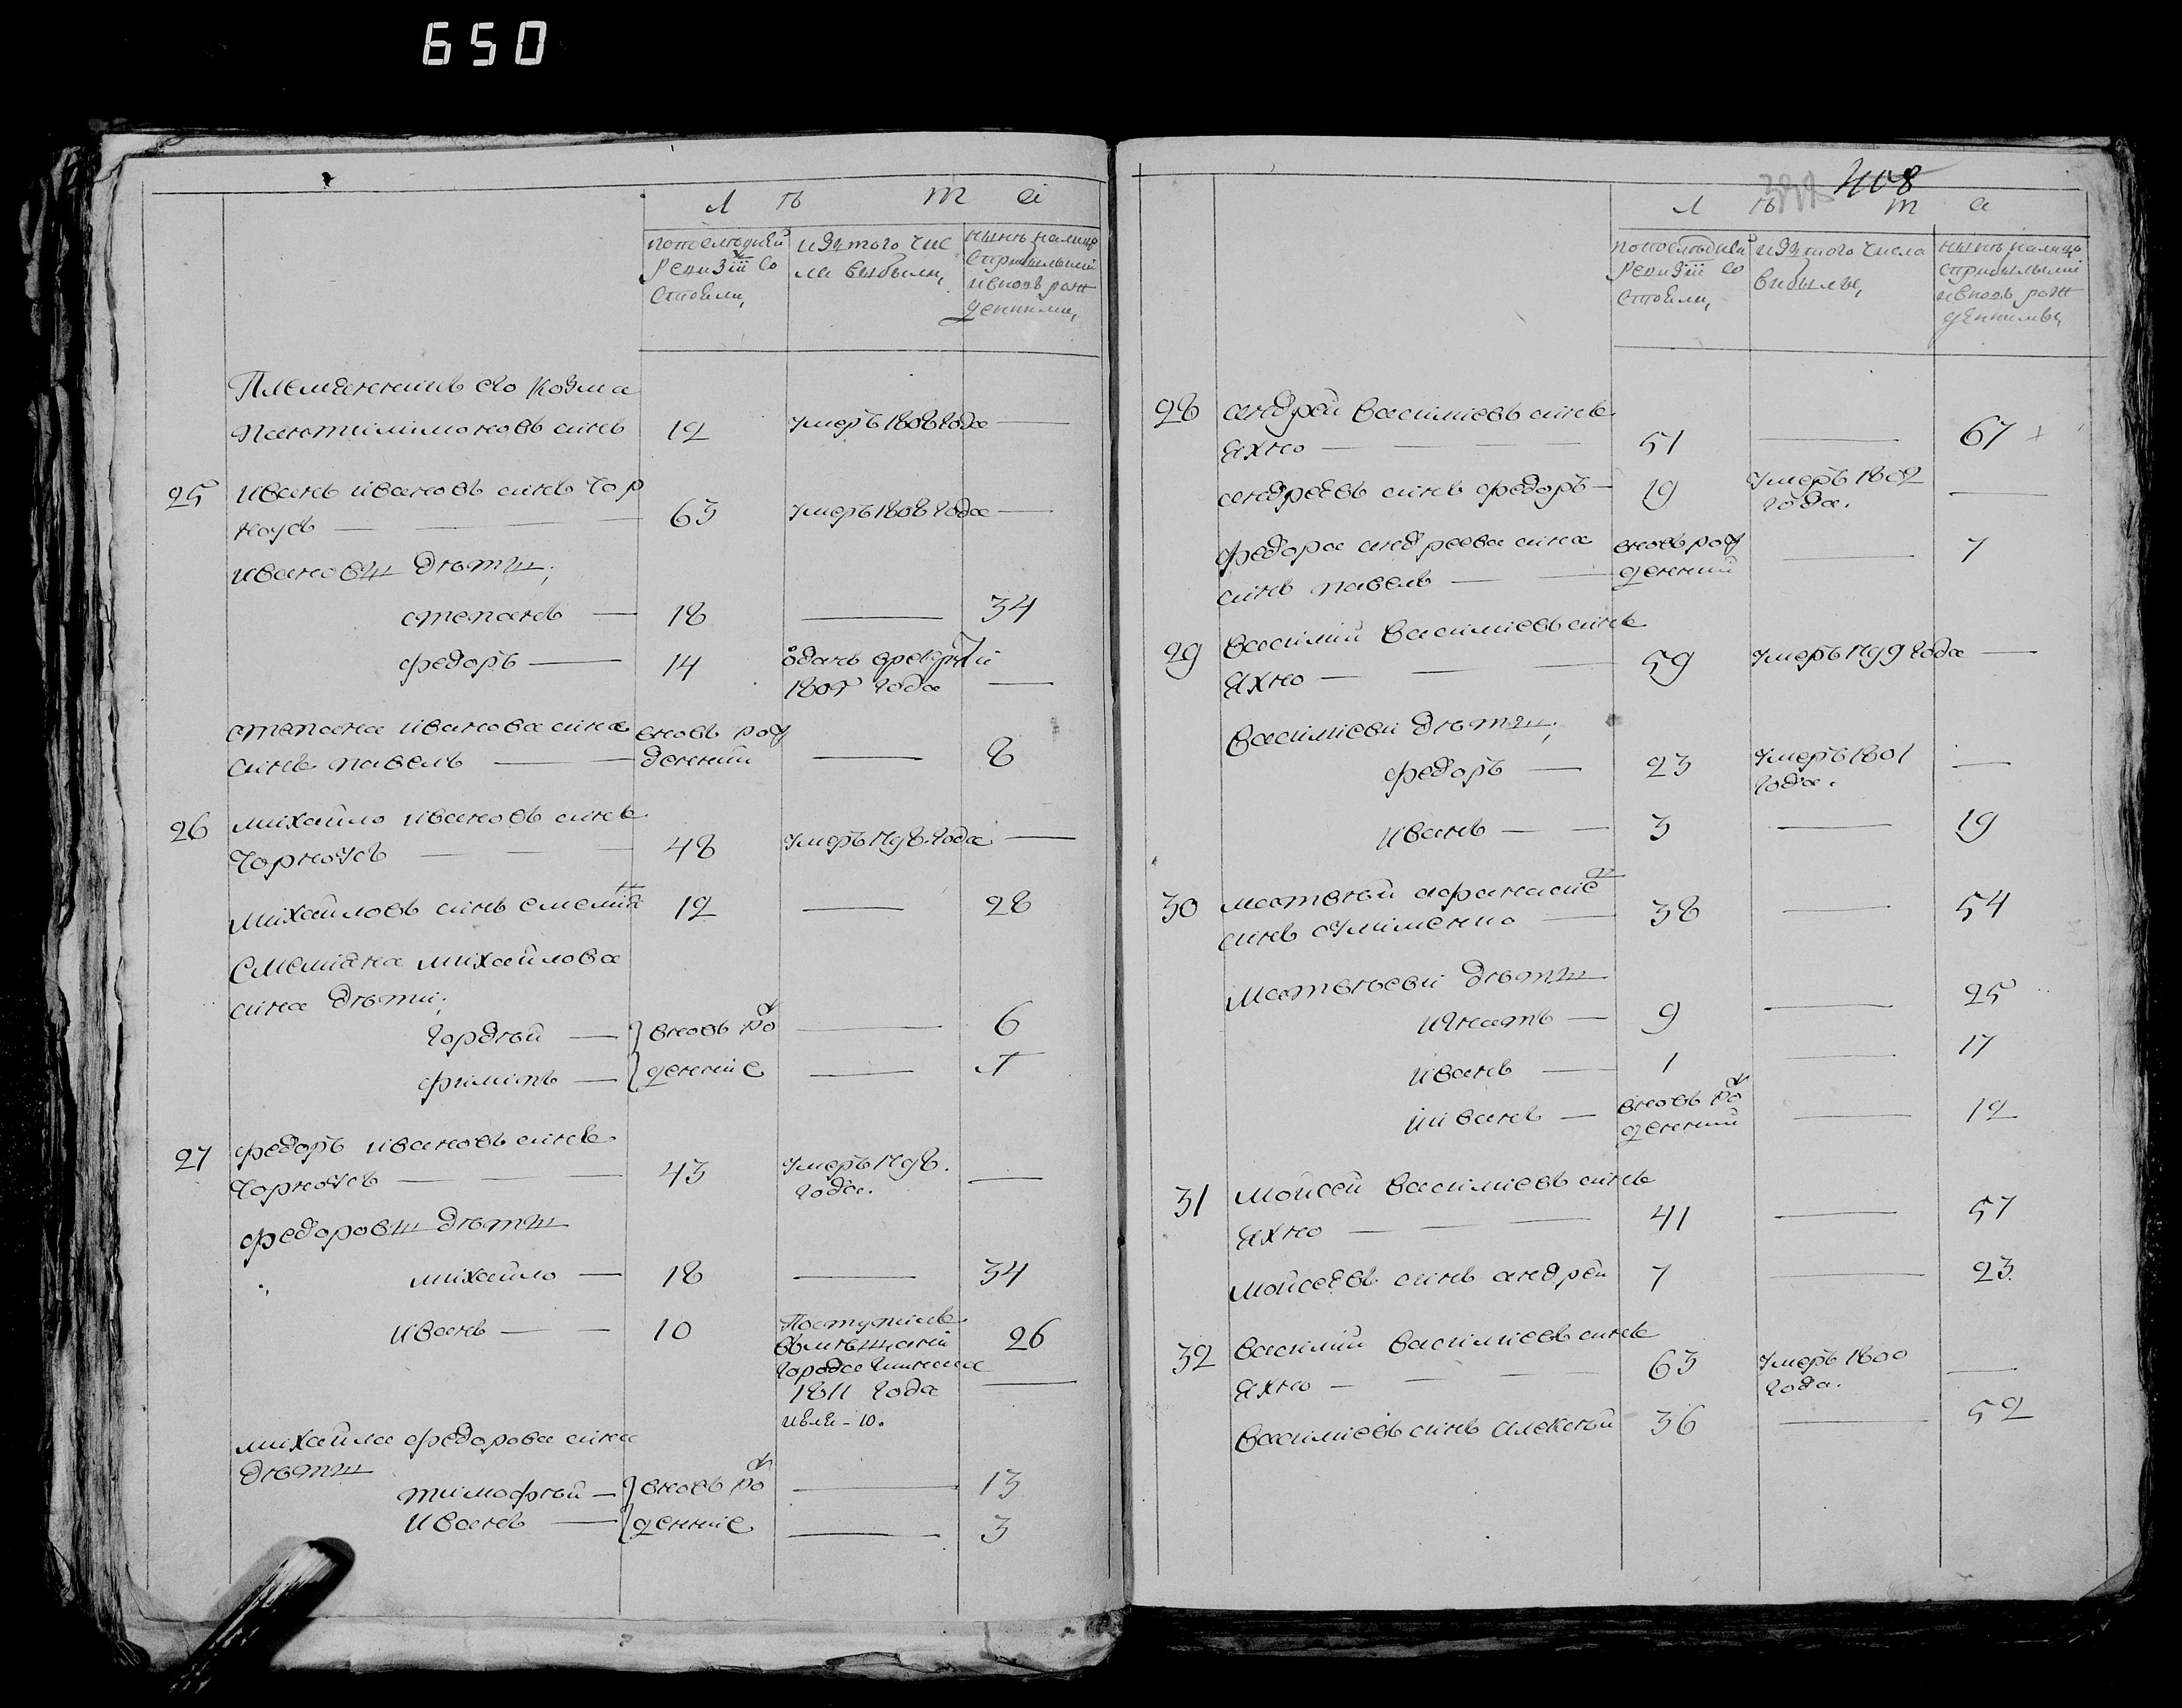 650
Л ѣ т а
попоследней
ревизіи со
стояли,
изътого чис
ла выбыли,
нынѣ налицо
сприбылыми
ивновь рож
денными,
Племянникъ его Козма
Пантилимоновъ синъ 12 умеръ 1808 года —
25 иванъ ивановъ синъ Чор
ноусъ — 63 умеръ 1808 года —
ивановы дѣты;
степанъ — 18 — 34
федоръ — 14 оданъ врекруты
1805 года —
степана иванова сина вновь рож
синъ павелъ — денний — 8
26 михайло ивановъ синъ
Чорноусъ — 48 умеръ 1798. года —
михайловъ синъ емелиянъ 12 — 28
Емелияна михайлова
сина дѣти;
гордѣй — вновь рож — 6
филипъ — деннiе —
27 федоръ ивановъ синъ
Чорноусъ — 43 умеръ 1798.
года. —
федоровы дѣты
михайло — 18 — 34
иванъ — 10 Поступилъ
вмѣщани 26
города
1811 года —
июля - 10.
михайла федорова сина
дѣты
тимофѣй — вновь рож — 13
иванъ — деннiе — 3
408
Л ѣ т а
попоследней
ревизіи со
стояли,
изътого числа
выбыли,
нынѣ налицо
сприбылыми
ивновь рож
денными,
28 андрей василиевъ синъ
Яхно — 51 — 67
андреевъ синъ федоръ — 19 умеръ 1802
года. —
федора андреева сина вновь рож
синъ павелъ — денний — 7
29 василий василиевъ синъ
Яхно — 59 умеръ 1799 года —
василиеви дѣты;
федоръ — 23 умеръ 1801
года. —
иванъ — 3 — 19
30 матвѣй афанасиевъ
синъ — 38 — 54
матвѣеви дѣты
игнатъ — 9 — 25
иванъ — 1 — 17
иванъ — вновь рож
денний — 12
31 мойсей василиевъ синъ
Яхно — 41 — 57
мойсеевъ синъ андрей 7 — 23.
32 василий василиевъ синъ
Яхно — 63 умеръ 1800
года. —
василиевъ синъ алексѣй 36 — 52